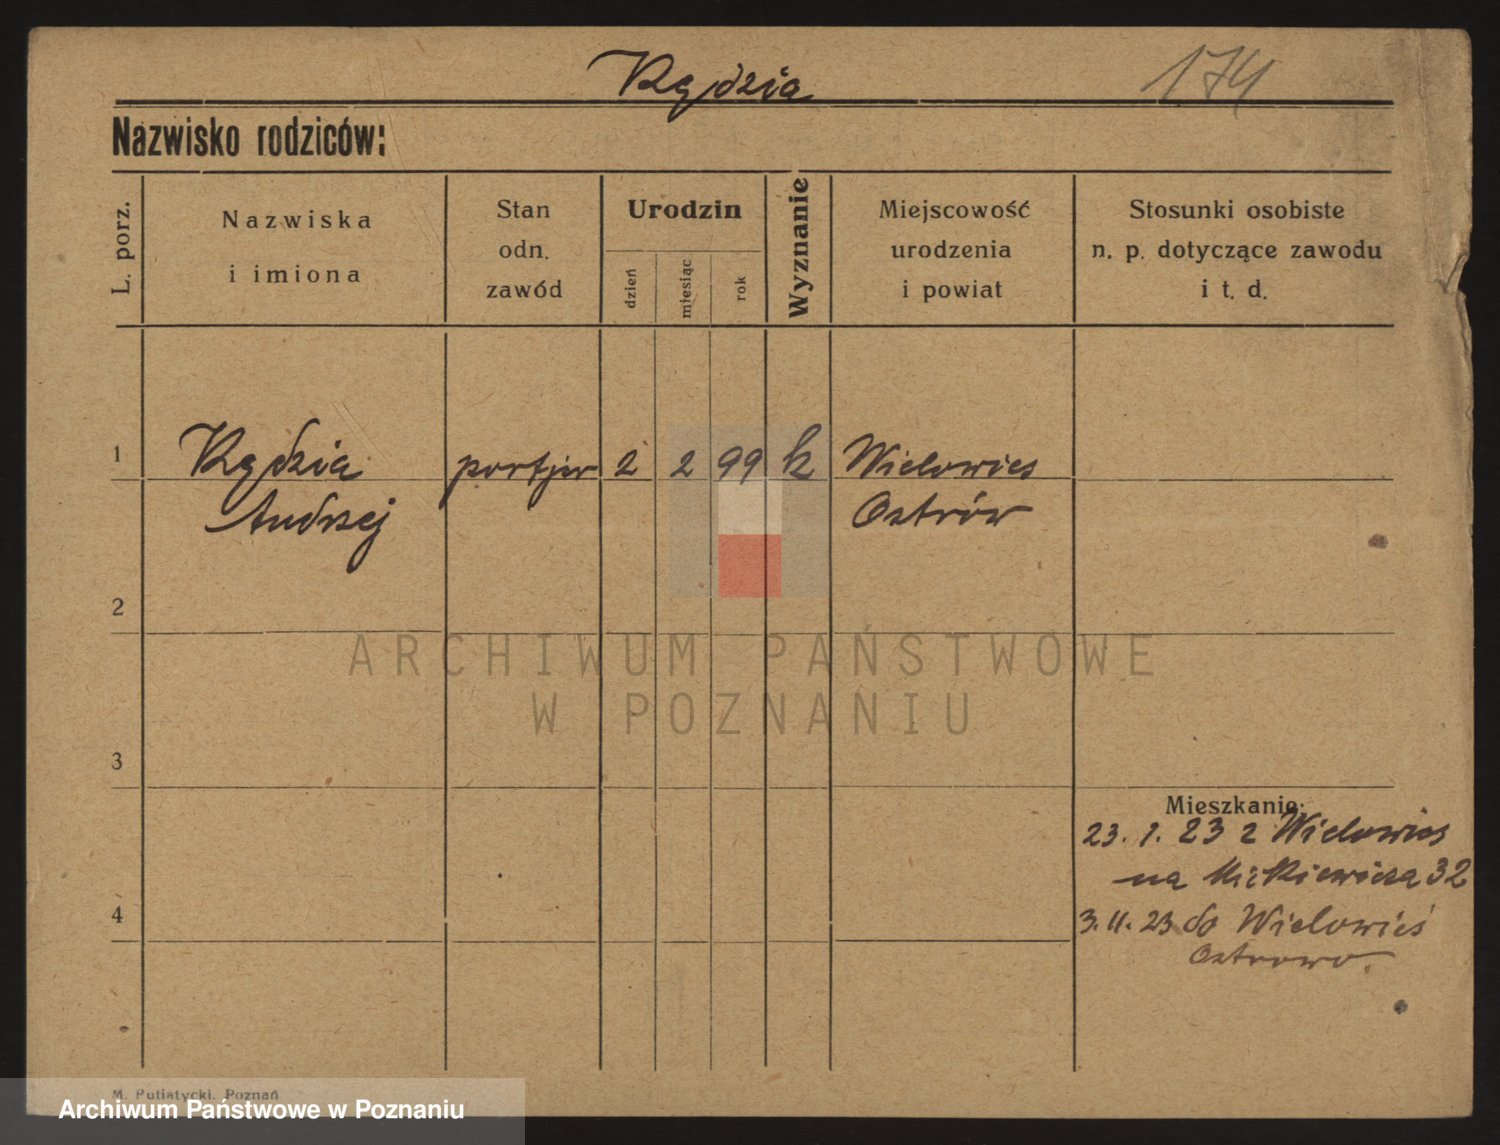 Kędzia 174
Nazwisko rodziców:
L. porz.
Nazwiska
i imiona
Stan
odn.
zawód
Urodzin
dzień
miesiąc
rok
Wyznanie
Miejscowość
urodzenia
i powiat
Stosunki osobiste
n. p. dotyczące zawodu
i t. d.
1 Kędzia portjer 2 2 99 k Wielowies
Andrzej Ostrów
2
ARCHIWUM PAŃSTWOWE
W POZNANIU
3
Mieszkanie:
23. 1. 23 z Wielowies
na Mickiewicza 32
4
3. 11. 23 do Wielowieś
Ostrowo.
M. Putiatycki, Poznań
Archiwum Państwowe w Poznaniu